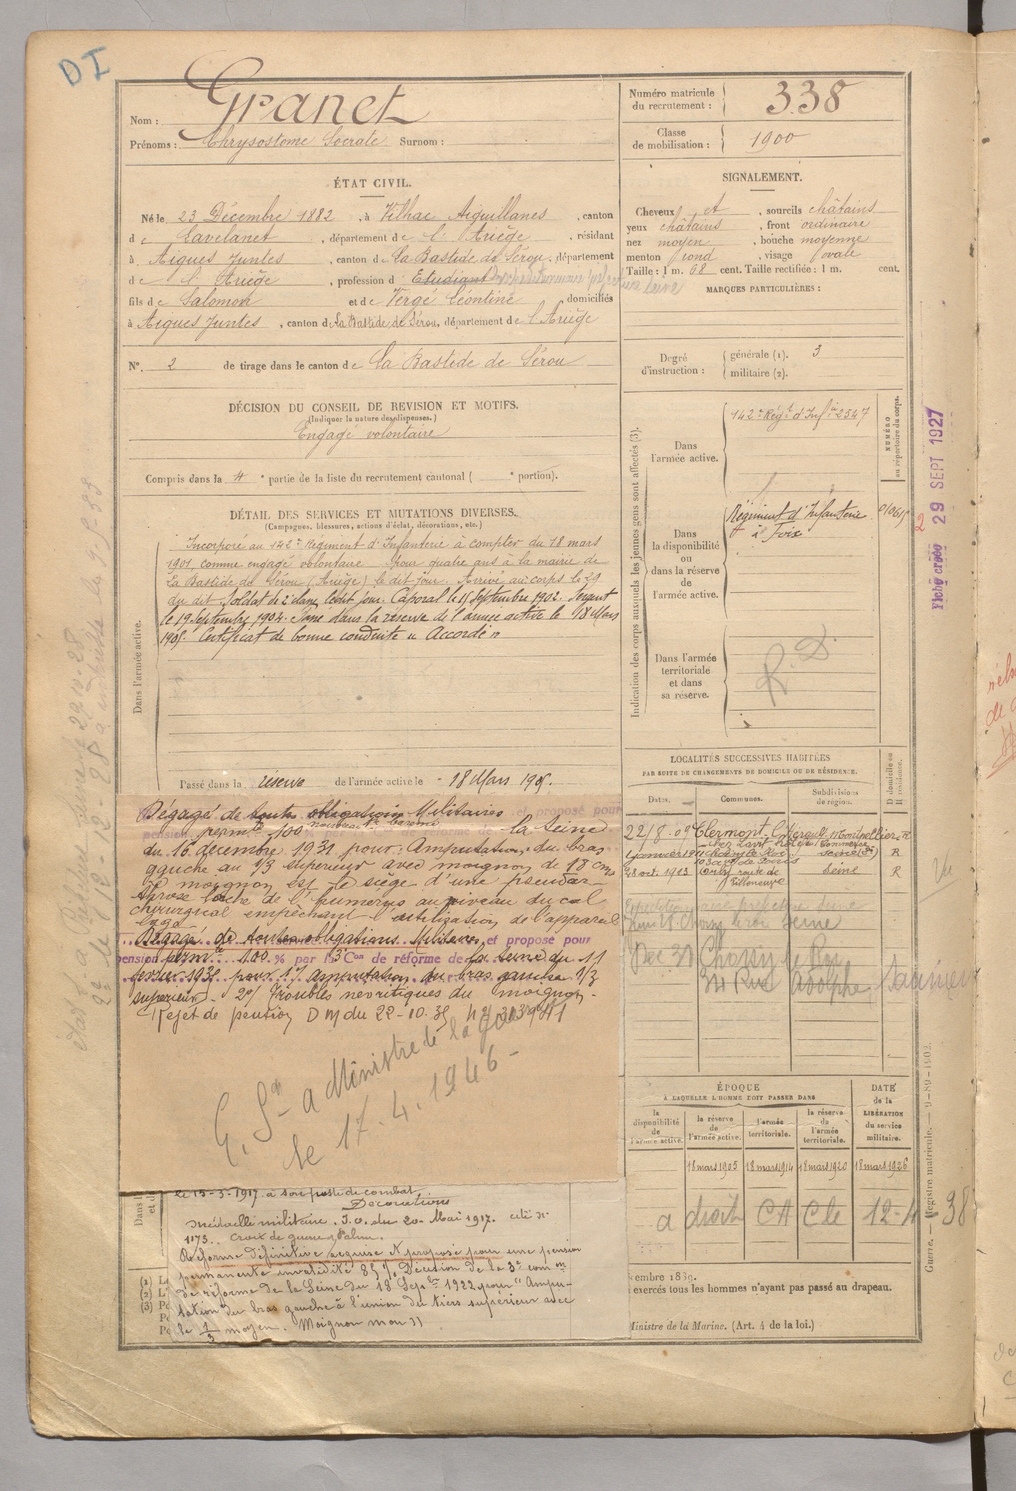 DI
Nom : Granet
Prénoms : Chrysostome Socrate Surnom :
Numéro matricule du recrutement : 338
Classe de mobilisation : 1900
ÉTAT CIVIL.
Né le 23 Décembre 1882, à Vilhac Aiguillanes, canton
de Lavelanet, département de l'Ariège, résidant
à Aigues Juntes, canton de La Bastide de Sérou, département
de l'Ariège, profession d Etudiant
fils de Salomon et de Vergé Léontine domiciliés
à Aigues Juntes, canton de La Bastide de Sérou, département de l'Ariège
N°. 2 de tirage dans le canton de La Bastide de Sérou
SIGNALEMENT.
Cheveux et, sourcils châtains
yeux châtains, front ordinaire
nez moyen, bouche moyenne
menton rond, visage ovale
Taille : 1 m. 68 cent. Taille rectifiée : 1 m. cent.
MARQUES PARTICULIÈRES :
Degré d'instruction : générale (1). 3
militaire (2).
DÉCISION DU CONSEIL DE REVISION ET MOTIFS.
(Indiquer la nature des dispenses.)
Engagé volontaire
Compris dans la 4e partie de la liste du recrutement cantonal ( e portion).
DÉTAIL DES SERVICES ET MUTATIONS DIVERSES.
(Campagnes, blessures, actions d'éclat, décorations, etc.)
Dans l'armée active.
Incorporé au 142e Régiment d'Infanterie à compter du 18 mars
1901 comme engagé volontaire pour quatre ans à la mairie de
La Bastide de Sérou (Ariège) le dit jour. Arrivé au corps le 21
du dit. Soldat de 2e classe ledit jour. Caporal le 15 Septembre 1902. Sergent
le 19 Septembre 1904. Passé dans la réserve de l'armée active le 18 Mars
1905. Certificat de bonne conduite « Accordé »
Passé dans la réserve de l'armée active le 18 Mars 1905.
Indication des corps auxquels les jeunes gens sont affectés (3).
NUMÉRO au répertoire du corps.
Dans l'armée active.
142e Régt d'Infie 2547
Dans la disponibilité ou dans la réserve de l'armée active.
Régiment d'Infanterie
à Foix
Dans l'armée territoriale et dans sa réserve.
R. D.
Fiche créée 29 SEPT 1927
LOCALITÉS SUCCESSIVES HABITÉES
PAR SUITE DE CHANGEMENTS DE DOMICILE OU DE RÉSIDENCE.
Dates. Communes. Subdivisions de région. D domicile ou R résidence.
Clermont Montpellier R
28 oct. 1913 Orly route de Villeneuve Seine R
Dec 30 Choisy le Roi
34 Rue Adolphe
Dégagé de toutes obligations Militaires et proposé pour
pension permte 100
la Seine
du 16 décembre 1931 pour : Amputation du bras
gauche au 1/3 supérieur avec moignon de 18 cm
le moignon est le siège d'une pseudar-
throse lâche de l'humerus au niveau du cal
chirurgical empêchant l'utilisation de l'appareil
Dégagé de toutes obligations Militaires et proposé pour
pension permte 100 % par la 3e Con de réforme de la Seine du 11
février 1935 pour 1°/ amputation du bras gauche 1/3
supérieur. 2°/ Troubles nevritiques du moignon.
Rejet de pension D M du 22-10-35
a Ministre de la Guerre
le 17.4.1946
le 15-3-1917 à son poste de combat
Décorations
Médaille militaire. J.O. du 20 Mai 1917.
Croix de guerre Palme.
Réforme définitive acquise et proposé pour une pension
permanente invalidité 85 %. Décision de la 3e comm
de réforme de la Seine du 18 Septbre 1922 pour "Ampu-
tation du bras gauche à l'union du tiers supérieur avec
le 1/3 moyen. Moignon
ÉPOQUE
À LAQUELLE L'HOMME DOIT PASSER DANS
la disponibilité de l'armée active. la réserve de l'armée active. l'armée territoriale. la réserve de l'armée territoriale.
DATE de la LIBÉRATION du service militaire.
18 mars 1905 18 mars 1914 18 mars 1920 18 mars 1926
a droit CA Cle 12-4-38
vembre 1889.
i exercés tous les hommes n'ayant pas passé au drapeau.
Ministre de la Marine. (Art. 4 de la loi.)
Guerre. — Registre matricule. — 9-89-1902.